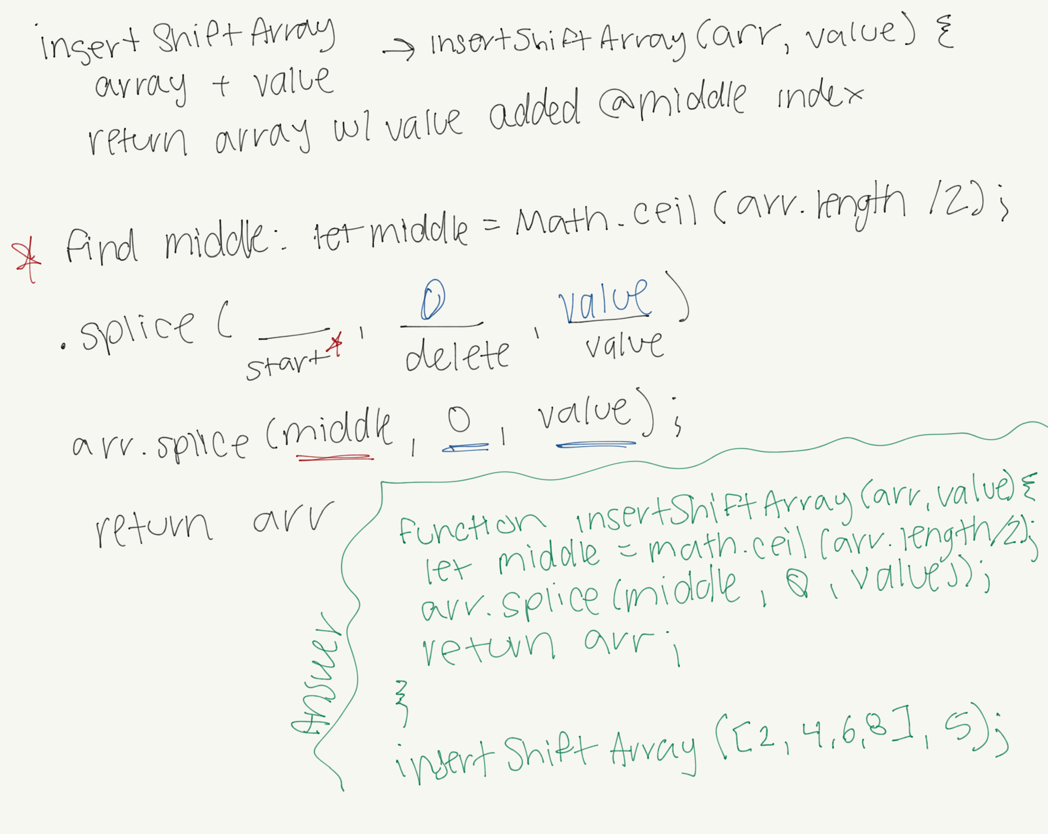 insertShiftArray → insertShiftArray(arr, value) {
array + value
return array w/ value added @middle index
* find middle: let middle = Math.ceil (arr.length /2);
.splice ( ___, 0, value )
start* delete value
arr.splice (middle, 0, value);
return arr
Answer
function insertShiftArray (arr, value) {
let middle = math.ceil (arr.length/2);
arr.splice (middle, 0, values);
return arr;
}
insertShiftArray ([2, 4, 6, 8], 5);